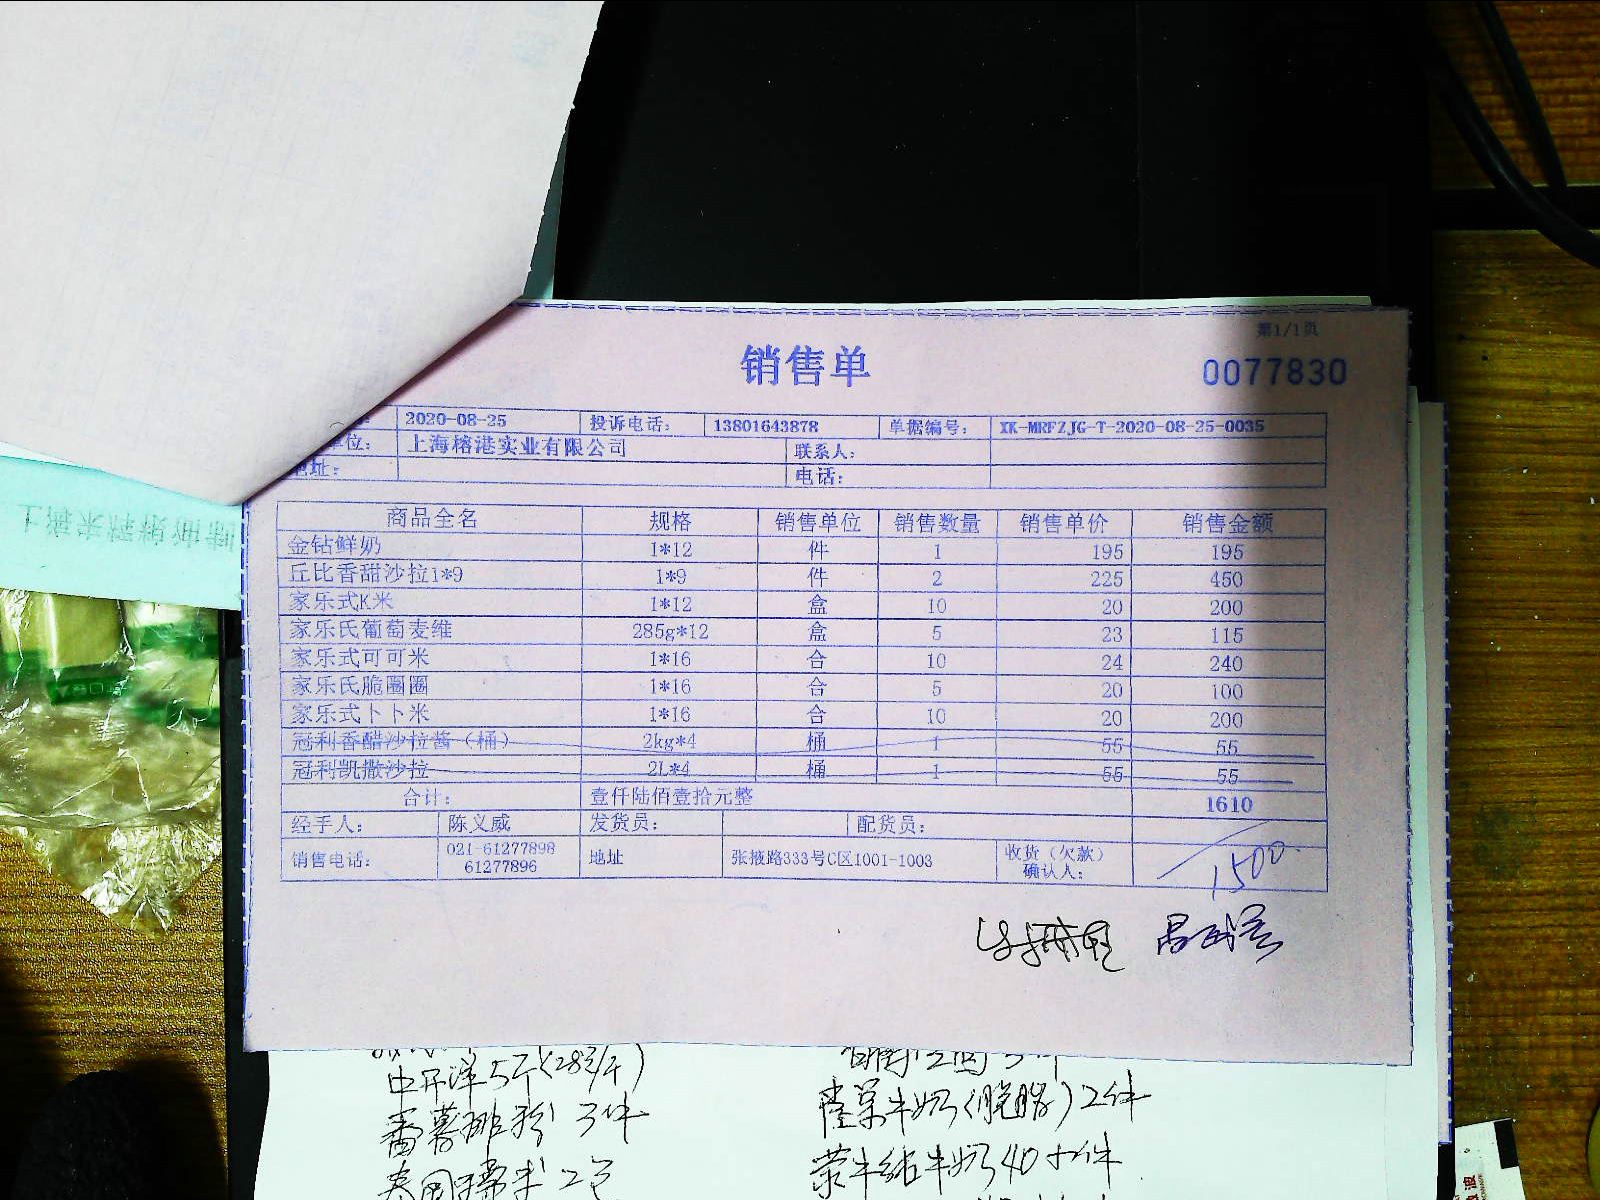 第1/1页
销售单
0077830
2020-08-25 投诉电话: 13801643878 单据编号: XK-MRFZJG-T-2020-08-25-0035
单位: 上海榕港实业有限公司 联系人:
地址: 电话:
商品全名 规格 销售单位 销售数量 销售单价 销售金额
金钻鲜奶 1*12 件 1 195 195
丘比香甜沙拉1*9 1*9 件 2 225 450
家乐式K米 1*12 盒 10 20 200
家乐氏葡萄麦维 285g*12 盒 5 23 115
家乐式可可米 1*16 合 10 24 240
家乐氏脆圈圈 1*16 合 5 20 100
家乐式卜卜米 1*16 合 10 20 200
冠利香醋沙拉酱（桶） 2kg*4 桶 1 55 55
冠利凯撒沙拉 2L*4 桶 1 55 55
合计: 壹仟陆佰壹拾元整 1610
经手人: 陈义威 发货员: 配货员:
销售电话: 021-61277898 61277896 地址 张掖路333号C区1001-1003 收货（欠款）确认人:
1500
中开洋5斤(28元/斤)
番薯粉 3件
牛奶(脱脂)2件
蒙牛纯牛奶40件